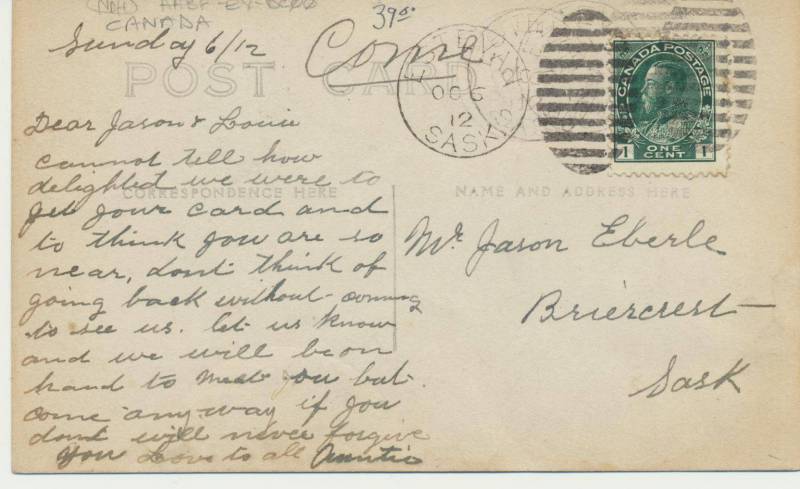 CANADA
39⁰⁰
Sunday 6/12
Come
POST CARD
OC 6
12
SASK
CANADA POSTAGE
1 ONE CENT 1
Dear Jason & Louie
cannot tell how
delighted we were to
CORRESPONDENCE HERE
NAME AND ADDRESS HERE
get your card and
to think you are so
near, dont think of
going back without coming
to see us. let us know
and we will be on
hand to meet you but
come any way if you
dont will never forgive
you Love to all Auntie
Mr Jason Eberle
Briercrest
Sask